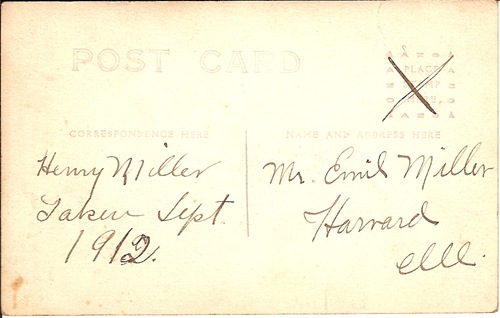 POST CARD
PLACE
STAMP
HERE
CORRESPONDENCE HERE
NAME AND ADDRESS HERE
Henry Miller
Taken Sept.
1912.
Mr. Emil Miller
Harvard
Ill.